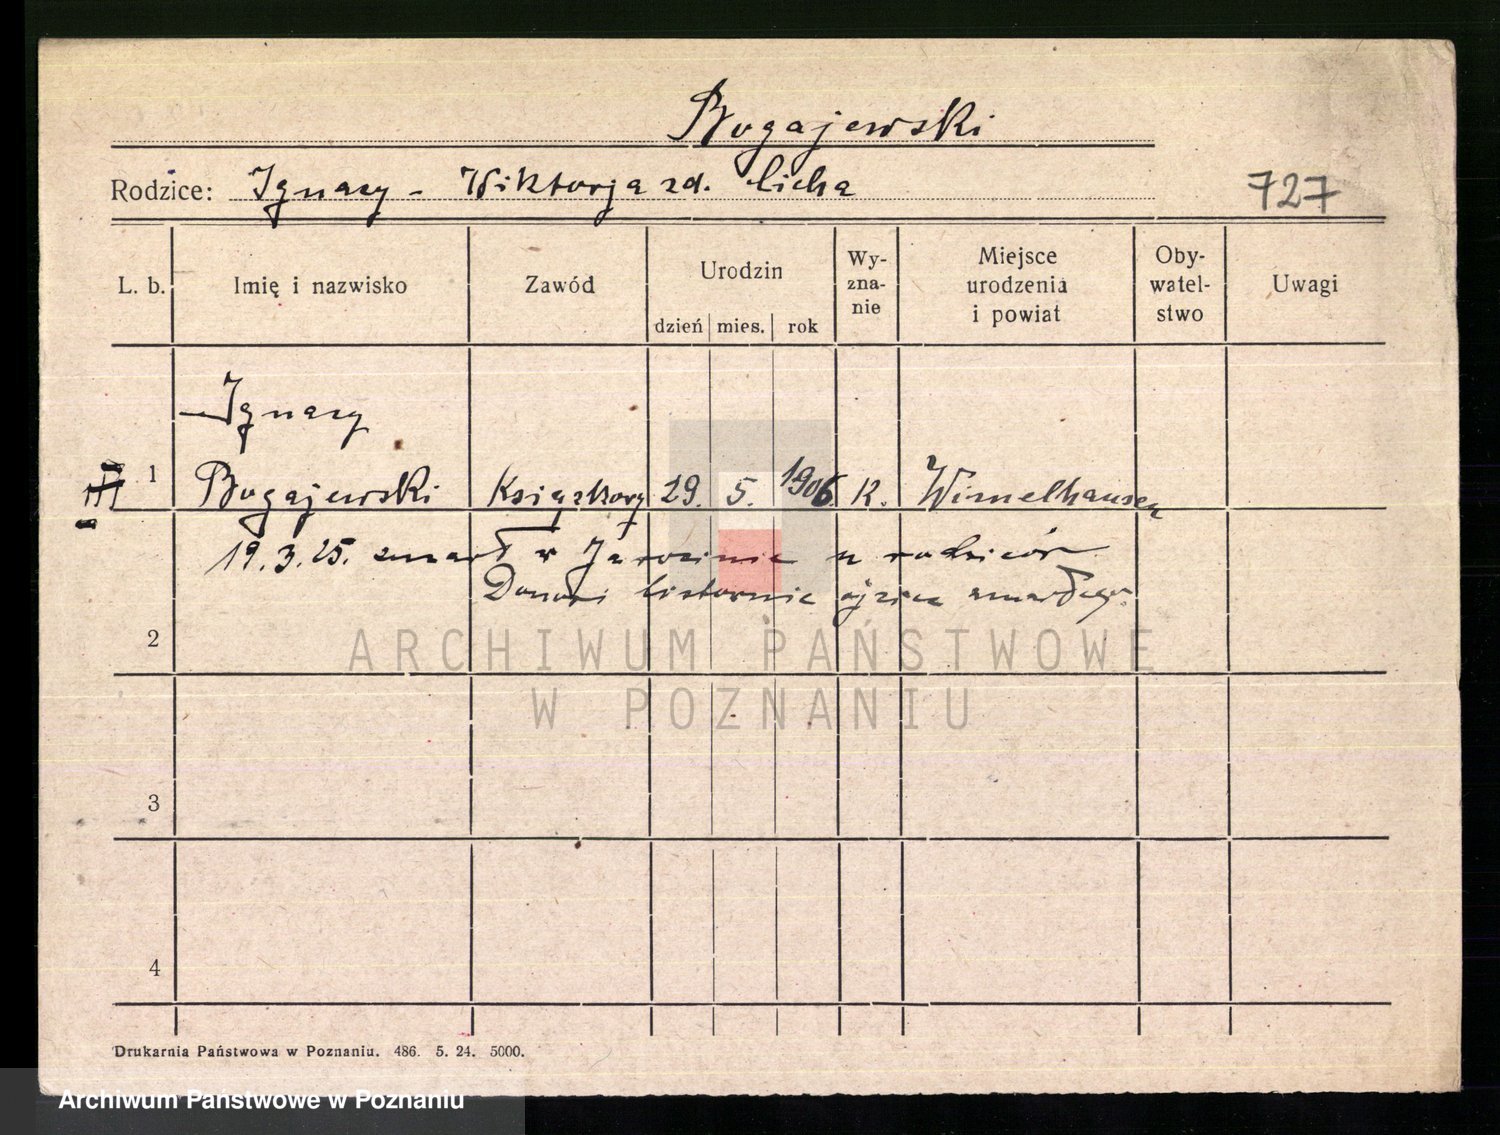 Bogajewski
Rodzice: Ignacy - Wiktorja zd. Licha
727
L. b. Imię i nazwisko Zawód Urodzin dzień mies. rok Wy-zna-nie Miejsce urodzenia i powiat Oby-watel-stwo Uwagi
Ignacy
1 Bogajewski Książkowy 29. 5. 1906. K. Wimelhausen
19.3.25. zmarł w Jarocinie u rodziców
Donosi listownie ojciec zmarłego.
2
ARCHIWUM PAŃSTWOWE
W POZNANIU
3
4
Drukarnia Państwowa w Poznaniu. 486. 5. 24. 5000.
Archiwum Państwowe w Poznaniu